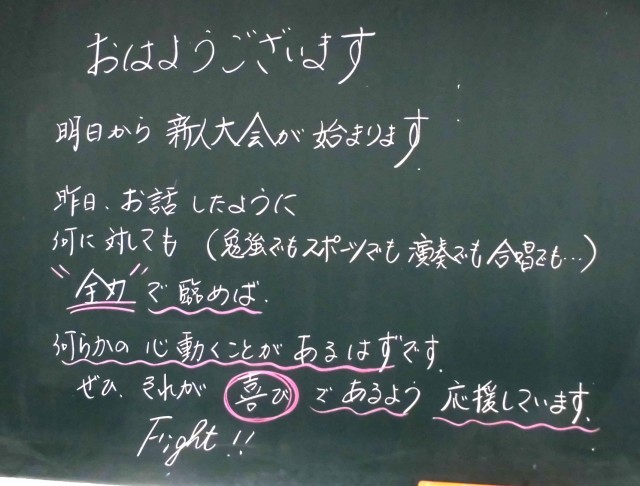 おはようございます
明日から 新人大会が 始まります
昨日、お話したように
何に対しても (勉強でもスポーツでも 演奏でも 合唱でも…)
"全力" で臨めば、
何らかの 心動くことが あるはずです。
ぜひ、それが 喜び であるよう 応援しています。
Fight!!